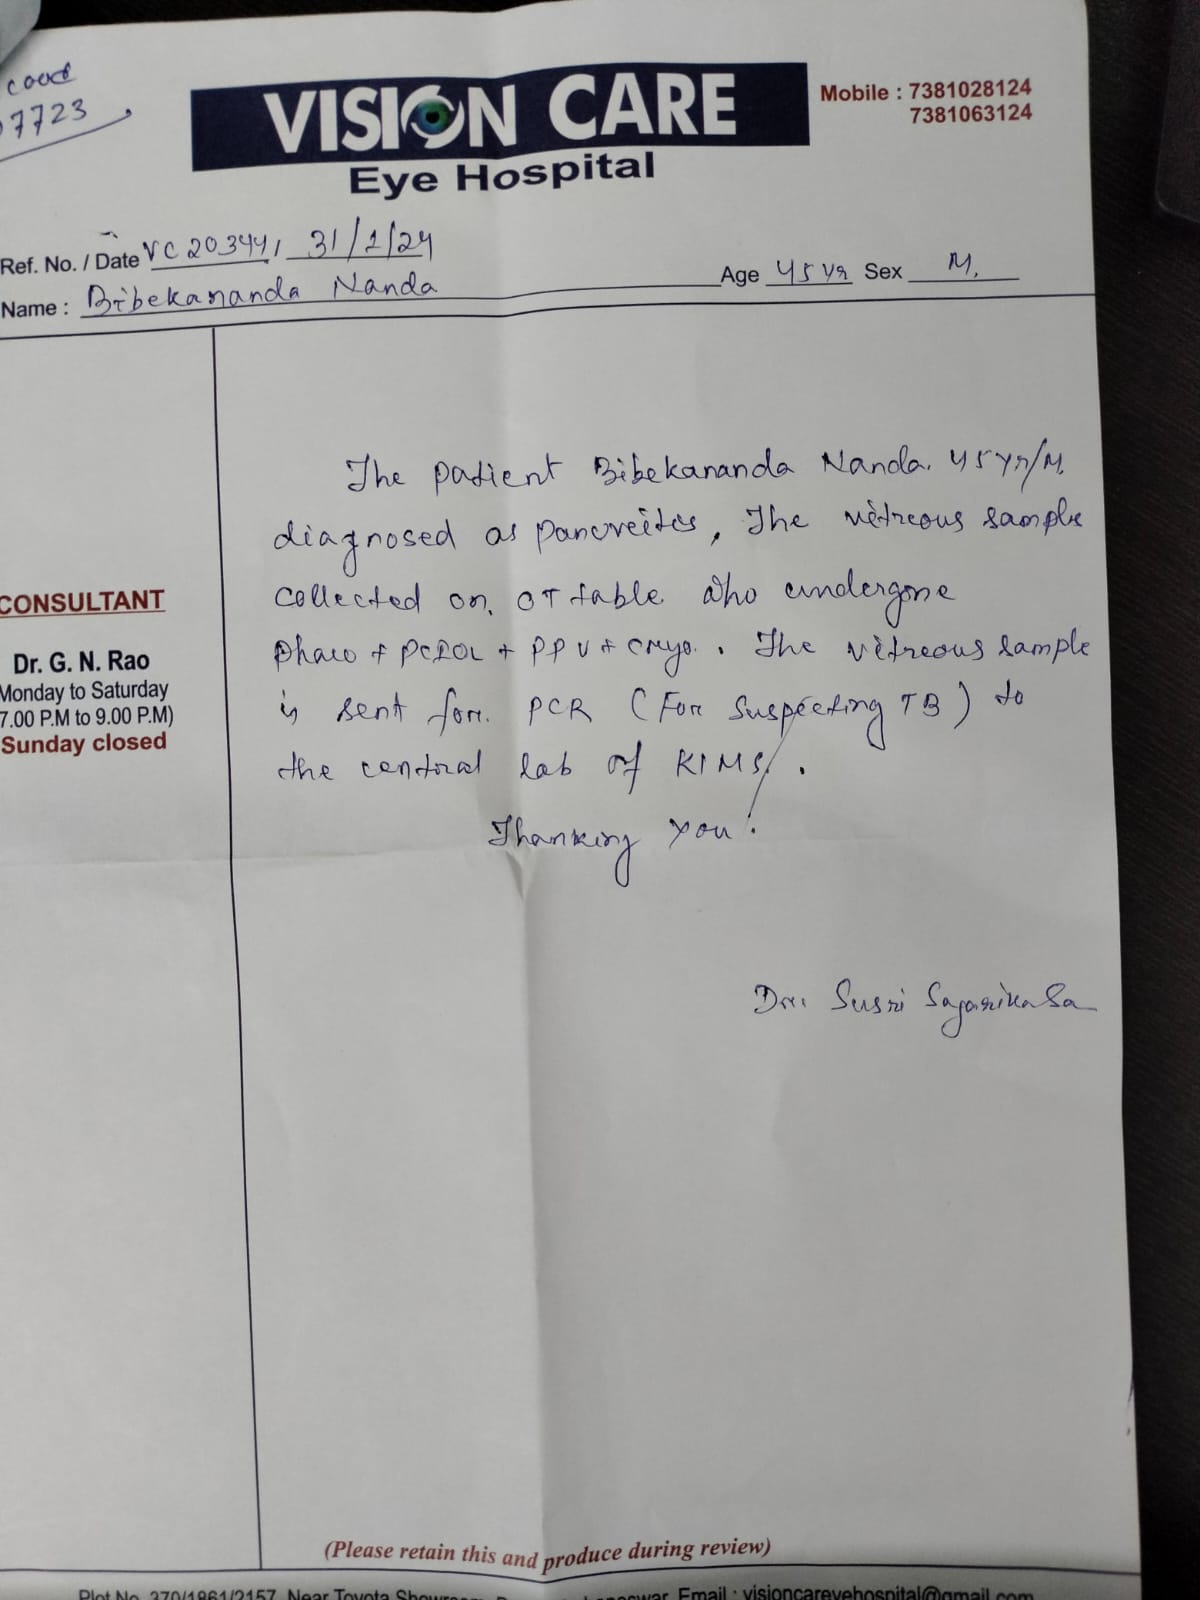 7723
VISION CARE
Eye Hospital
Mobile : 7381028124
7381063124
Ref. No. / Date VC 20344, 31/1/24
Name : Bibekananda Nanda
Age 45 yr Sex M.
The patient Bibekananda Nanda. 45 yr/M.
diagnosed as pancreitis, The vitreous sample
collected on, OT table who undergone
phaco + PCIOL + PPV + cryo. . The vitreous sample
is sent for. PCR (For suspecting TB) to
the central lab of KIMS .
Thanking you!
CONSULTANT
Dr. G. N. Rao
Monday to Saturday
7.00 P.M to 9.00 P.M)
Sunday closed
Dr. Susri Sagarika Sa
(Please retain this and produce during review)
Plot No. 370/1861/2157, Near Toyota Email : visioncareeyehospital@gmail.com